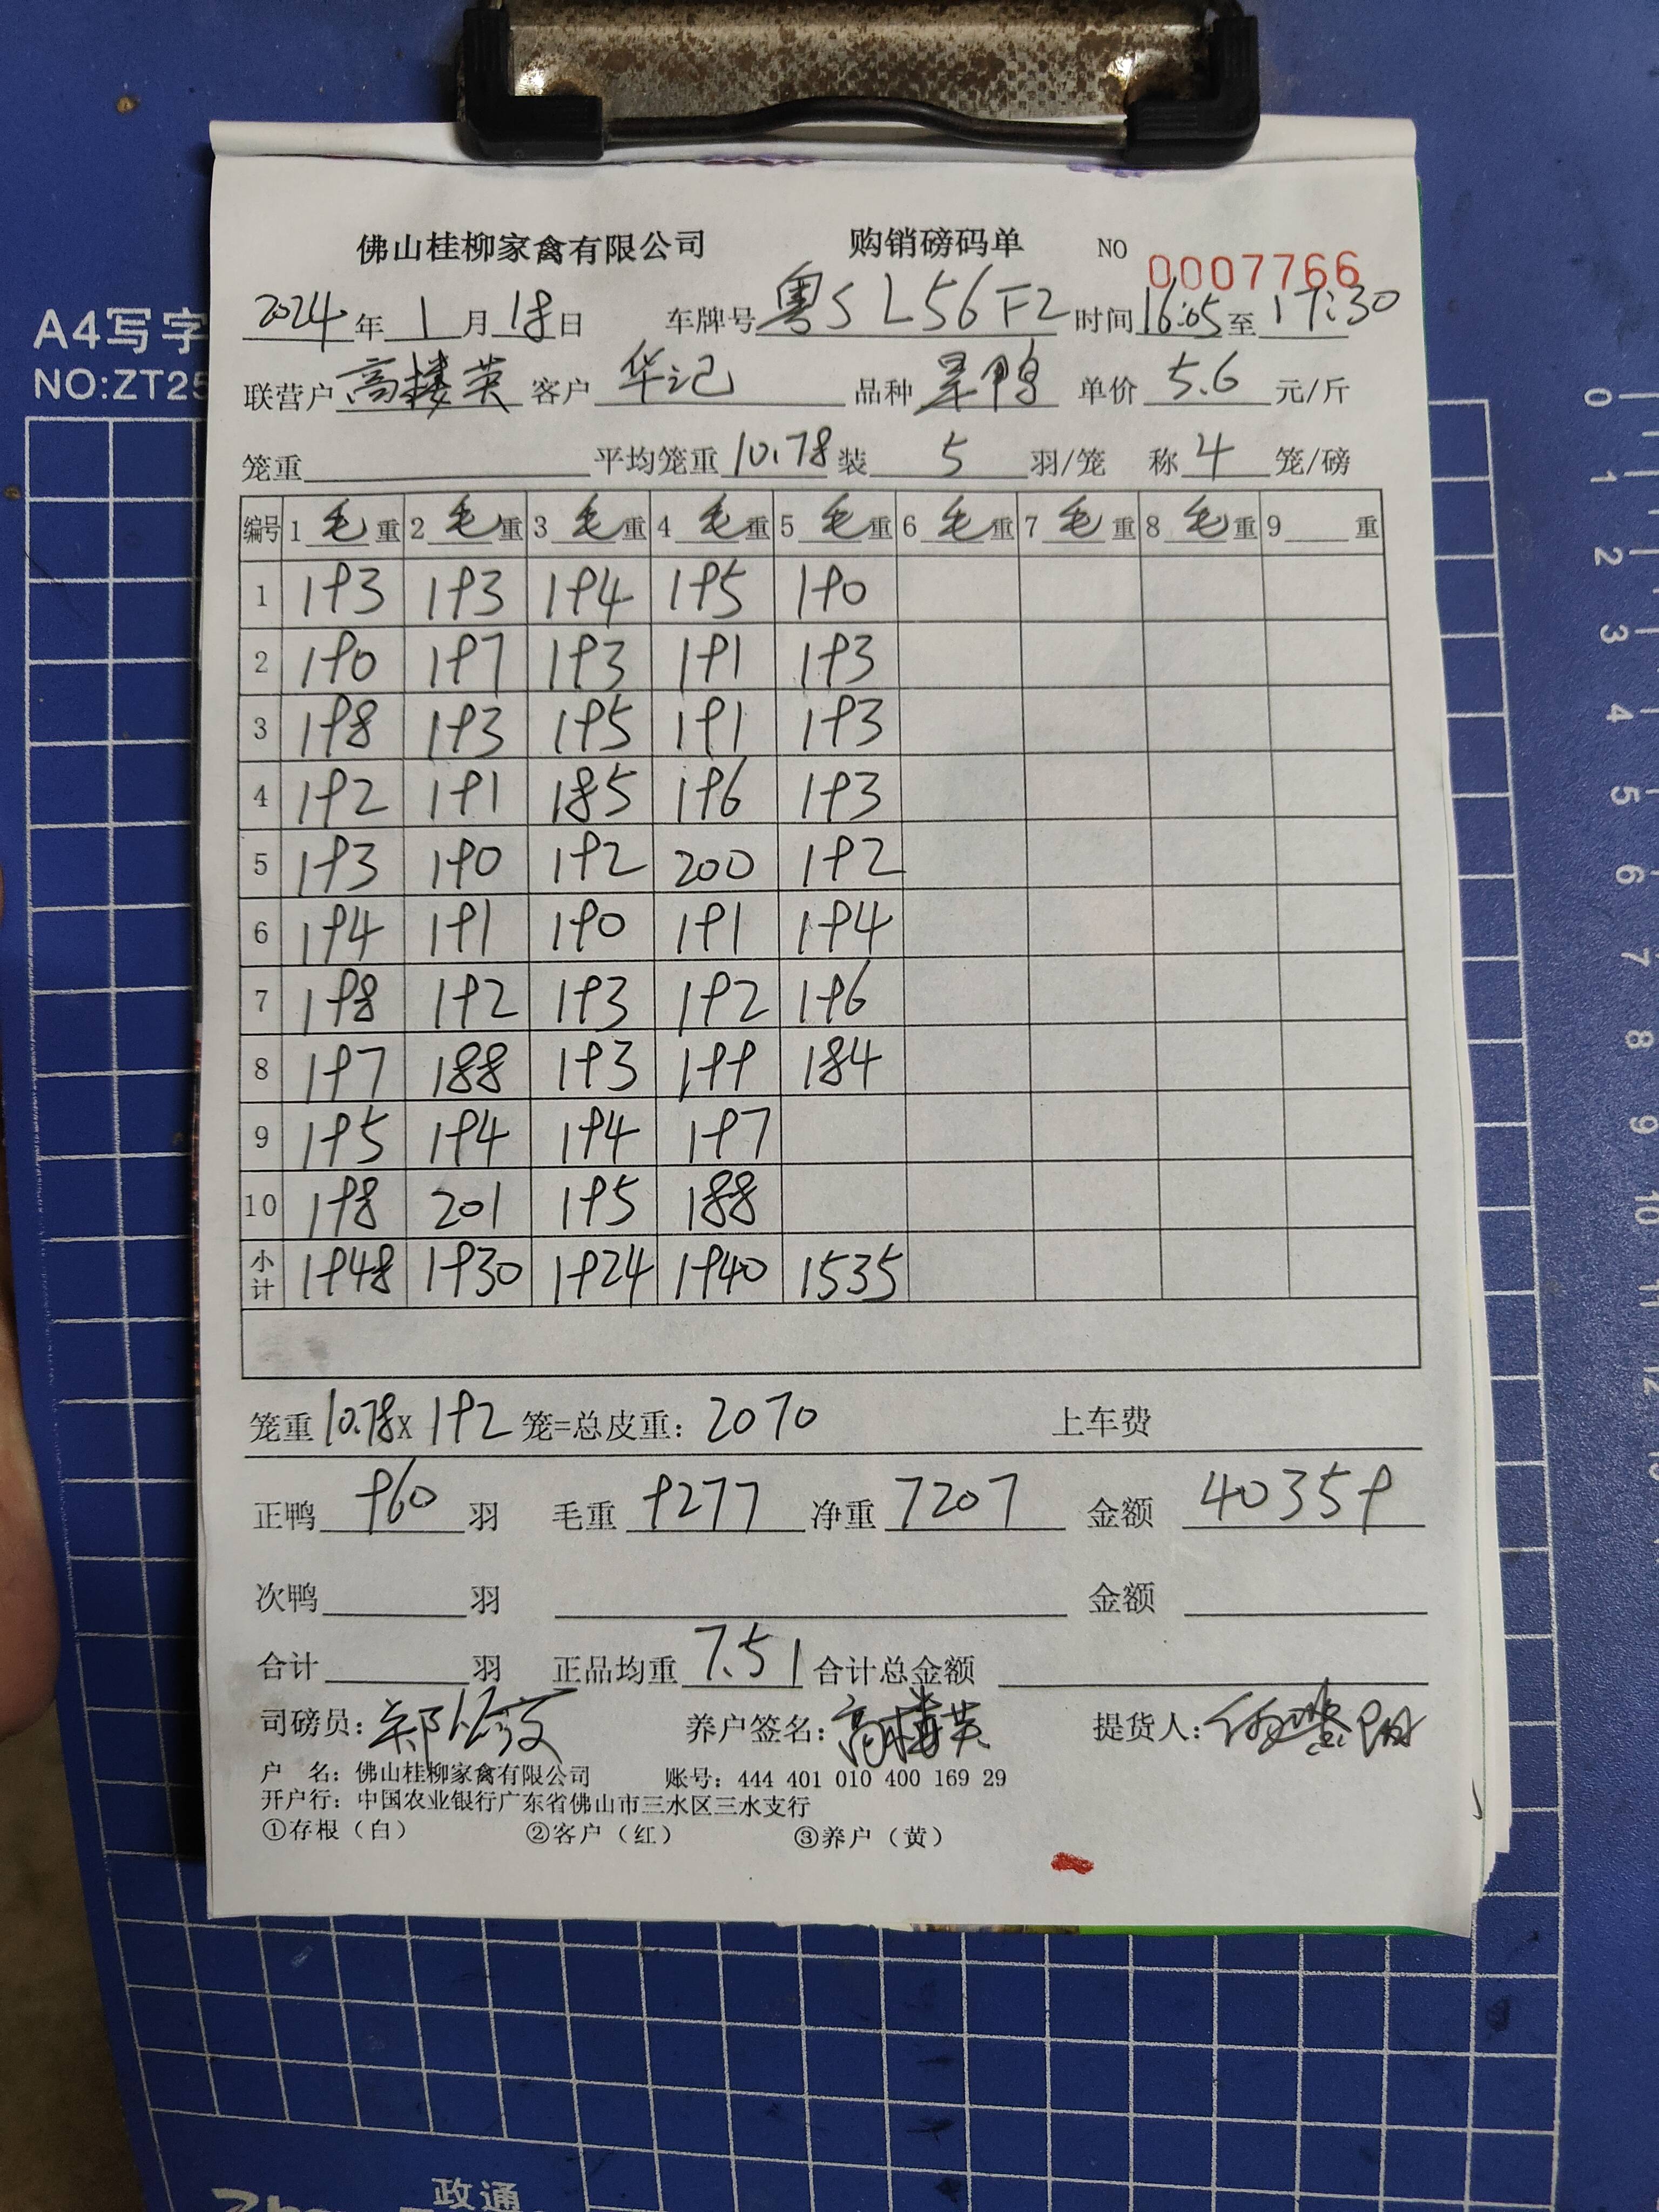 佛山桂柳家禽有限公司 购销磅码单 NO 0007766
A4写字
NO:ZT25
2024年1月18日 车牌号粤SL56F2 时间16:05至17:30
联营户高楼英 客户华记 品种 单价5.6元/斤
笼重 平均笼重10.78装5羽/笼 称4笼/磅
编号 1毛重 2毛重 3毛重 4毛重 5毛重 6毛重 7毛重 8毛重 9重
1 193 193 194 195 190
2 190 197 193 191 193
3 198 193 195 191 193
4 192 191 185 196 193
5 193 190 192 200 192
6 194 191 190 191 194
7 198 192 193 192 196
8 197 188 193 199 184
9 195 194 194 197
10 198 201 195 188
小计 1948 1930 1924 1940 1535
笼重10.78x192笼=总皮重：2070 上车费
正鸭960羽 毛重9277 净重7207 金额40359
次鸭 羽 金额
合计 羽 正品均重7.51合计总金额
司磅员： 养户签名：高楼英 提货人：
户 名：佛山桂柳家禽有限公司 账号：444 401 010 400 169 29
开户行：中国农业银行广东省佛山市三水区三水支行
①存根（白） ②客户（红） ③养户（黄）
0
1
2
3
4
5
6
7
8
9
10
11
12
13
政通